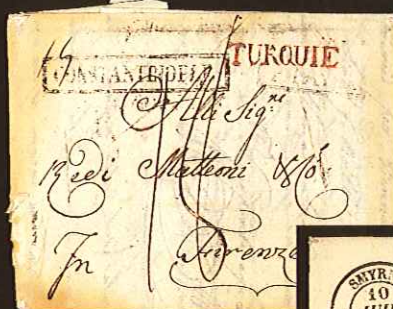 CONSTANTINOPLE
TURQUIE
Alli Sig.ri
Redi Matteoni & Co.
In Firenze
SMYRN
10